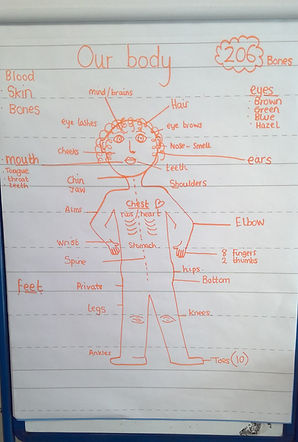 Our body
206 Bones
Blood
· Skin
· Bones
mind/brains
Hair
eyes
· Brown
· Green
· Blue
· Hazel
eye lashes
eye brows
cheeks
Nose - Smell
mouth
· Tongue
· throat
· teeth
ears
teeth
Chin
Jaw
Shoulders
Chest
ribs/heart
Arms
Elbow
Wrist
Stomach
Spine
8 fingers
2 thumbs
hips
feet
Private
Bottom
Legs
Knees
Ankles
Toes (10)